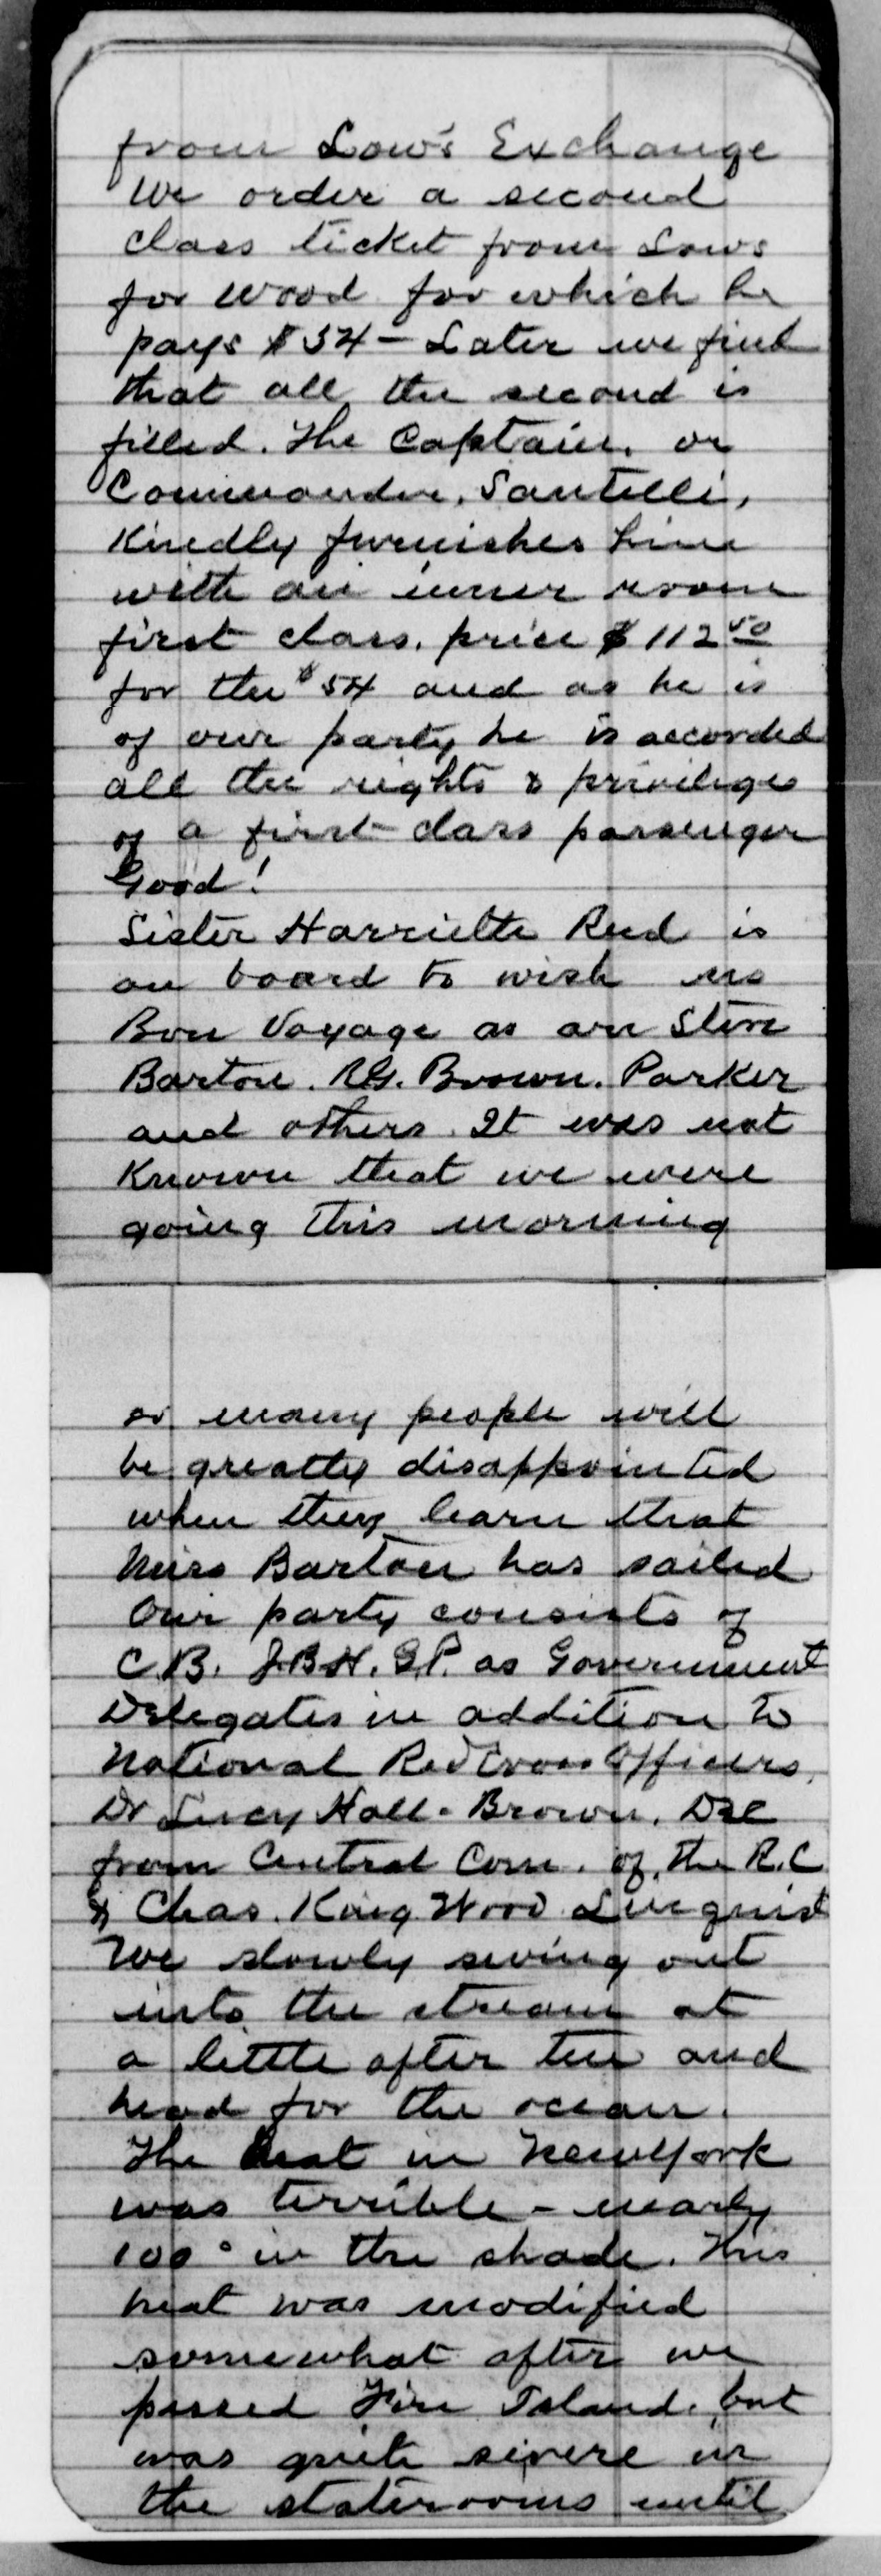 from Low's Exchange
We order a second
class ticket from Lows
for Wood for which he
pays $54 - Later we find
that all the second is
filled. The Captain, or
Commander, Santelli,
Kindly furnishes him
with an inner room
first class. price $112 50
for the $54 and as he is
of our party he is accorded
all the rights & privileges
of a first class passenger
Good!
Sister Harriette Reed is
on board to wish us
Bon Voyage as are Steve
Barton. R.G. Brown. Parker
and others. It was not
Known that we were
going this morning
or many people will
be greatly disappointed
when they learn that
Miss Barton has sailed
Our party consists of
C.B. J.B.H. G.P. as Government
Delegates in addition to
National Red Cross Officers,
Dr Lucy Hall-Brown. Del
from Central Com. of the R.C
& Chas. King Wood Linguist
We slowly swing out
into the stream at
a little after ten and
head for the ocean.
The heat in New York
was terrible - nearly
100° in the shade. This
heat was modified
somewhat after we
passed Fire Island. but
was quite severe in
the staterooms until